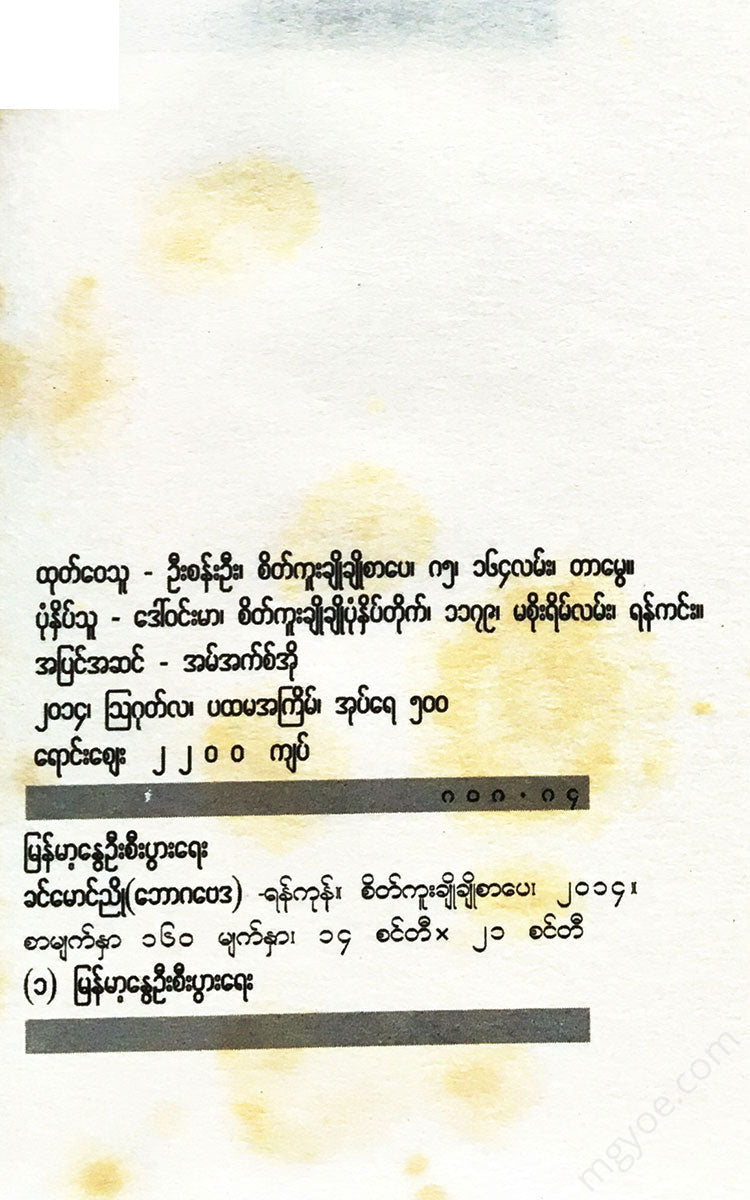 ထုတ်ဝေသူ - ဦးစန်းဦး၊ စိတ်ကူးချိုချိုစာပေ၊ ဂ၅၊ ၁၆၄လမ်း၊ တာမွေ။
ပုံနှိပ်သူ - ဒေါ်ဝင်းမာ၊ စိတ်ကူးချိုချိုပုံနှိပ်တိုက်၊ ၁၁၇၉၊ မစိုးရိမ်လမ်း၊ ရန်ကင်း။
အပြင်အဆင် - အမ်အက်စ်အို
၂၀၁၄၊ ဩဂုတ်လ၊ ပထမအကြိမ်၊ အုပ်ရေ ၅၀၀
ရောင်းဈေး ၂၂၀၀ ကျပ်
၈၀၈.၈၄
မြန်မာ့နွေဦးစီးပွားရေး
ခင်မောင်ညို(ဘောဂဗေဒ) -ရန်ကုန်။ စိတ်ကူးချိုချိုစာပေ၊ ၂၀၁၄။
စာမျက်နှာ ၁၆၀ မျက်နှာ၊ ၁၄ စင်တီ× ၂၁ စင်တီ
(၁) မြန်မာ့နွေဦးစီးပွားရေး
mgyoe.com